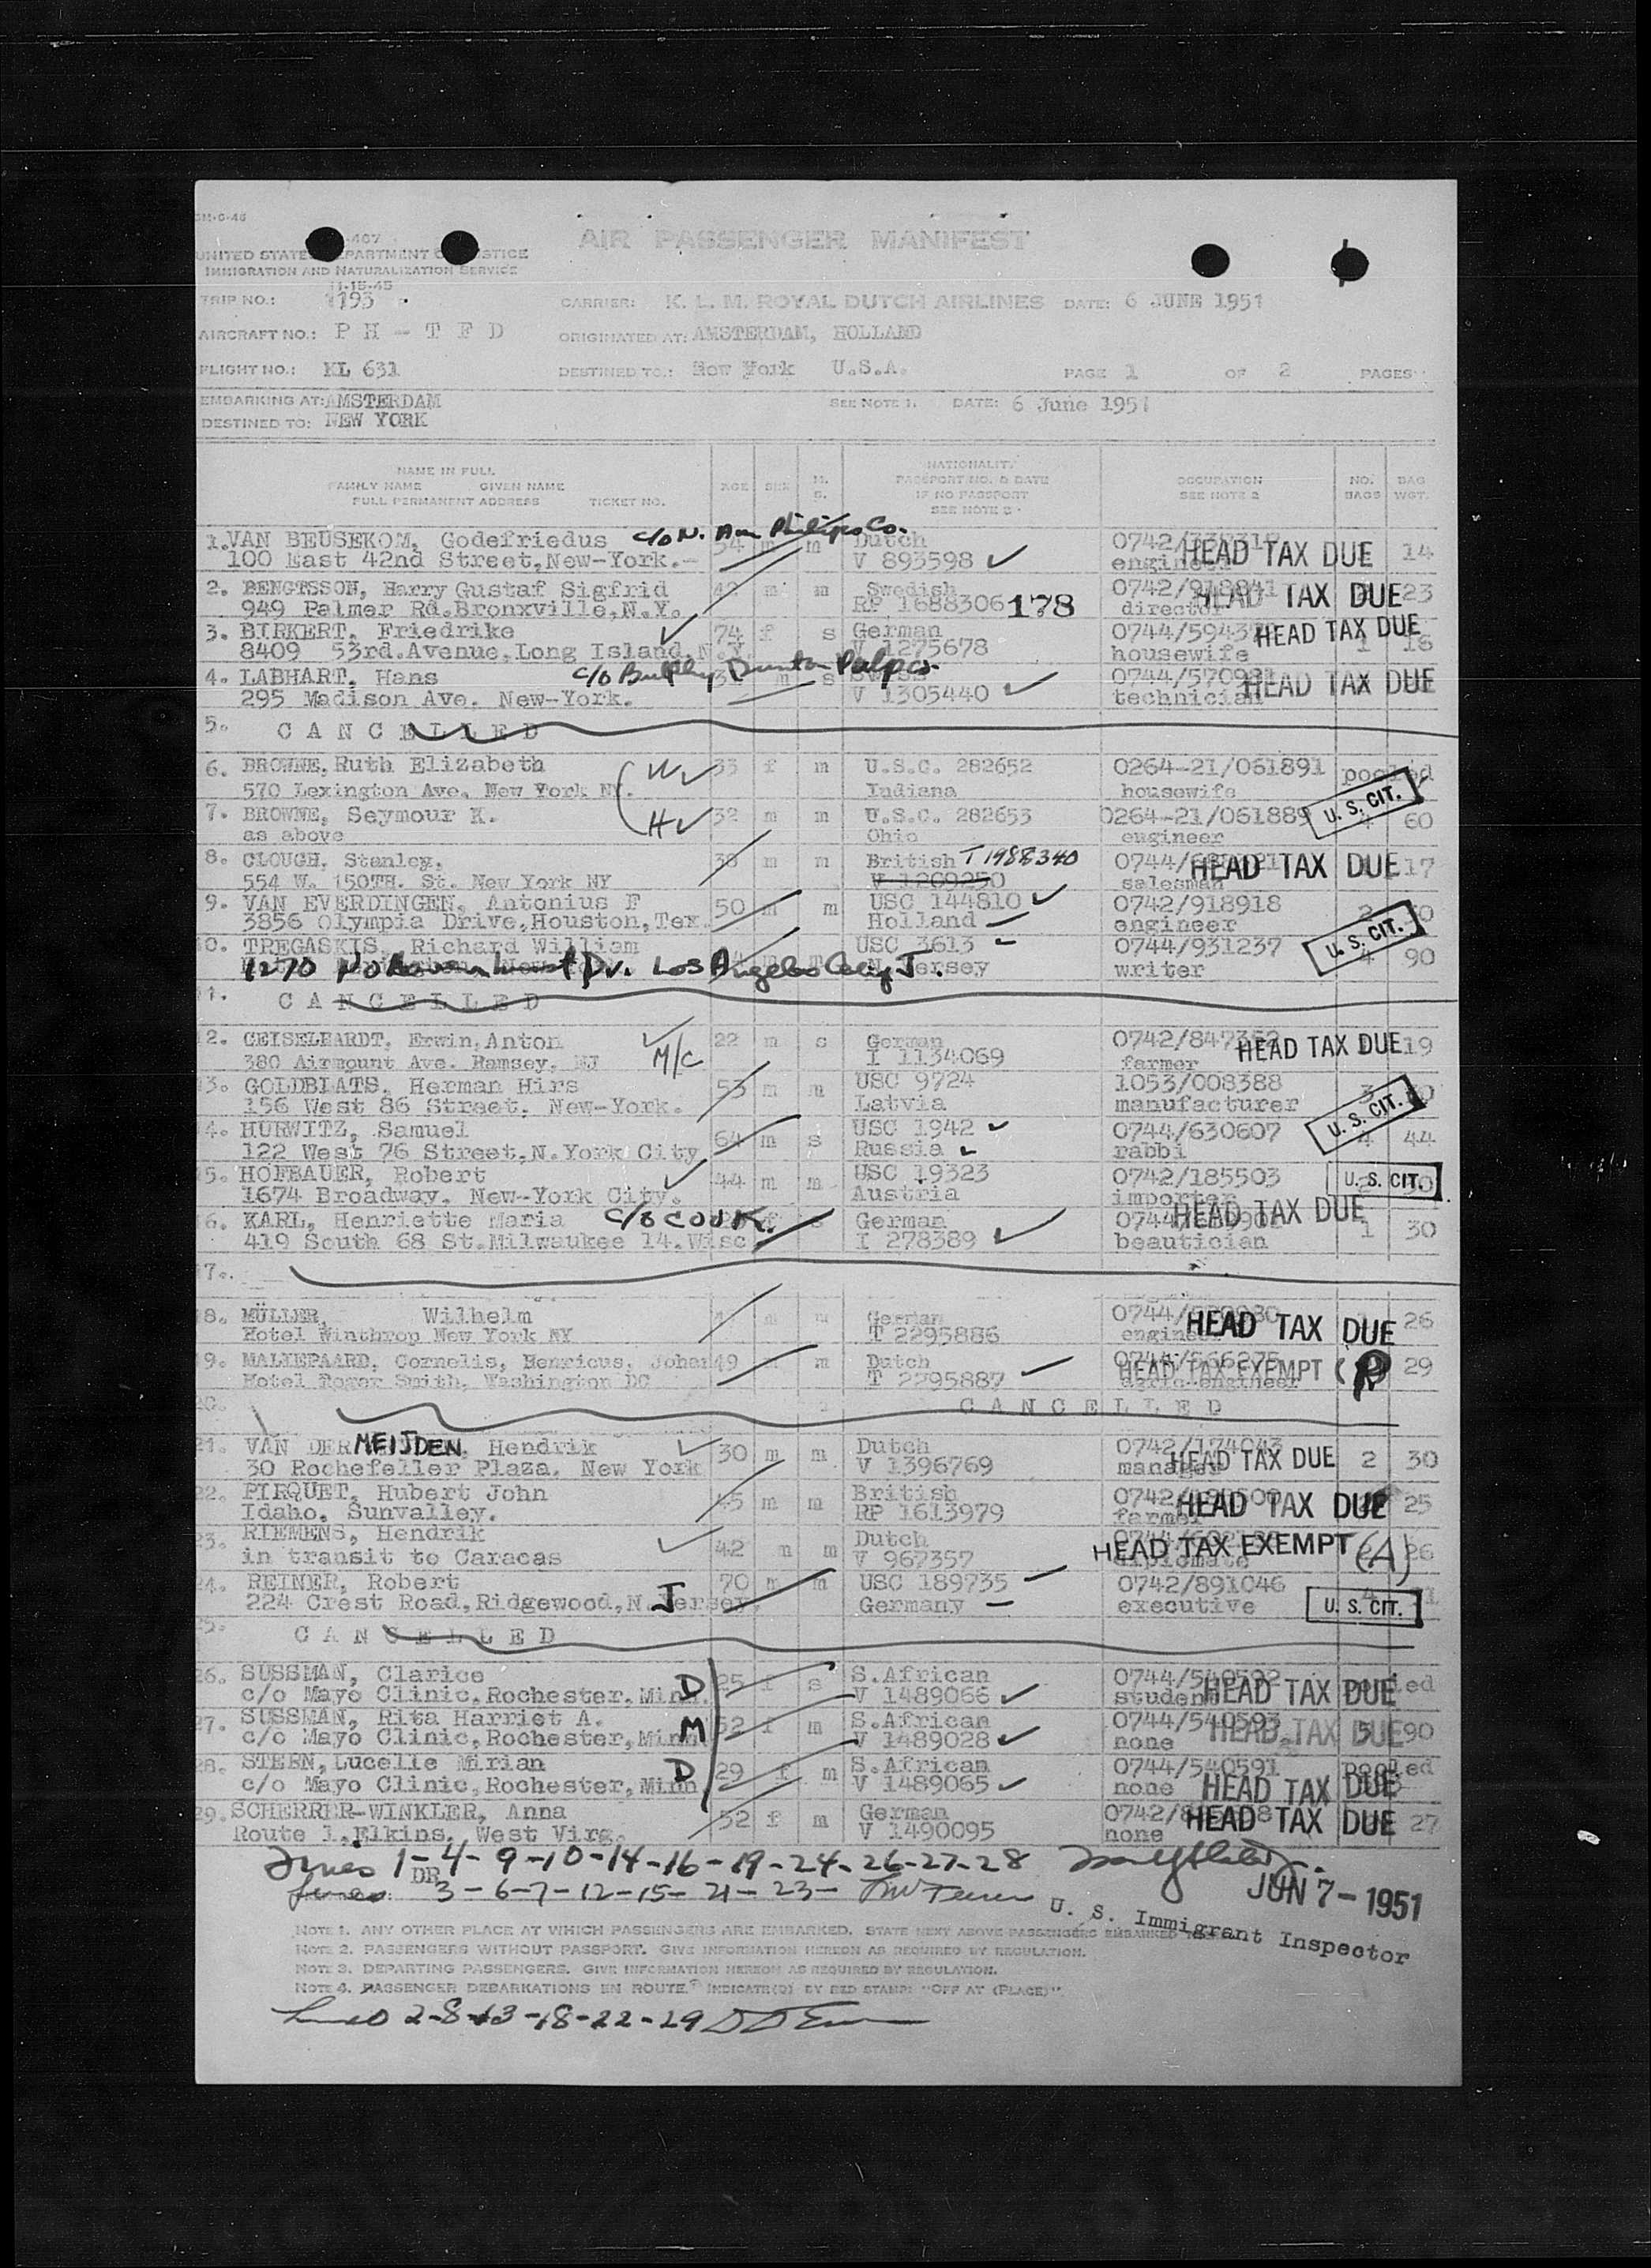 AIR PASSENGER MANIFEST
UNITED STATES DEPARTMENT OF JUSTICE
IMMIGRATION AND NATURALIZATION SERVICE
11-15-45
TRIP NO.: 1193 CARRIER: K. L. M. ROYAL DUTCH AIRLINES DATE: 6 JUNE 1951
AIRCRAFT NO.: P H - T F D ORIGINATED AT: AMSTERDAM, HOLLAND
FLIGHT NO.: KL 631 DESTINED TO.: New York U.S.A. PAGE 1 OF 2 PAGES
EMBARKING AT: AMSTERDAM SEE NOTE 1. DATE: 6 June 1951
DESTINED TO: NEW YORK
NAME IN FULL NATIONALITY
FAMILY NAME GIVEN NAME AGE SEX M. PASSPORT NO. & DATE OCCUPATION NO. BAG
FULL PERMANENT ADDRESS TICKET NO. S. IF NO PASSPORT SEE NOTE 2 BAGS WGT.
SEE NOTE 3
1. VAN BEUSEKOM, Godefriedus c/o N. Am Philips Co. 54 m m Dutch HEAD TAX DUE 14
100 East 42nd Street, New-York.- V 893598 engineer
2. BENGTSSON, Harry Gustaf Sigfrid 42 m m Swedish 0742/918841 HEAD TAX DUE 23
949 Palmer Rd.Bronxville, N.Y. RP 1688306 178 director
3. BIRKERT, Friedrike 74 f s German HEAD TAX DUE
8409 53rd.Avenue, Long Island, N.Y. V 1275678 housewife 1 18
4. LABHART, Hans c/o Bulkley Dunton Pulp co. m s HEAD TAX DUE
295 Madison Ave. New-York. V 1305440 technician
5. C A N C E L L E D
6. BROWNE, Ruth Elizabeth W 33 f m U.S.C. 282652 0264-21/061891 pooled
570 Lexington Ave. New York NY. Indiana housewife
7. BROWNE, Seymour K. H 32 m m U.S.C. 282653 0264-21/061889 U. S. CIT. 60
as above Ohio engineer
8. CLOUGH, Stanley, 38 m m British T 1988340 HEAD TAX DUE 17
554 W. 150TH. St. New York NY V 1269250 salesman
9. VAN EVERDINGEN, Antonius F 50 m m USC 144810 0742/918918 2
3856 Olympia Drive, Houston, Tex. Holland engineer
10. TREGASKIS, Richard William USC 3613 0744/931237 U. S. CIT.
1270 Dr. Los Angeles Jersey writer 4 90
11. C A N C E L L E D
12. GEISELHARDT, Erwin, Anton 22 m s German HEAD TAX DUE 19
380 Airmount Ave. Ramsey, NJ M/C I 1134069 farmer
13. GOLDBLATS, Herman Hirs 53 m m USC 9724 1053/008388 3
156 West 86 Street, New-York. Latvia manufacturer
14. HURWITZ, Samuel 64 m s USC 1942 0744/630607 U. S. CIT.
122 West 76 Street, N.York City Russia rabbi 4 44
15. HOFBAUER, Robert 44 m m USC 19323 0742/185503 U. S. CIT.
1674 Broadway. New-York City. Austria importer
16. KARL, Henriette Maria c/o COOK. f s German HEAD TAX DUE
419 South 68 St.Milwaukee 14. Wisc. I 278389 beautician 1 30
17.
18. MÜLLER, Wilhelm m German HEAD TAX DUE 26
Hotel Winthrop New York NY T 2295886 engineer
19. MALIEPAARD, Cornelis, Henricus, Johan 49 m Dutch HEAD TAX EXEMPT 29
Hotel Roger Smith, Washington DC T 2295887 agric engineer
20. C A N C E L L E D
21. VAN DER MEIJDEN, Hendrik 30 m m Dutch 0742/174043 HEAD TAX DUE 2 30
30 Rochefeller Plaza. New York V 1396769 manager
22. PIRQUET, Hubert John 45 m m British HEAD TAX DUE 25
Idaho, Sunvalley. RP 1613979 farmer
23. RIEMENS, Hendrik 42 m m Dutch HEAD TAX EXEMPT (A) 26
in transit to Caracas V 967357 diplomate
24. REINER, Robert 70 m m USC 189735 0742/891046
224 Crest Road, Ridgewood, N. Jersey. J Germany executive U. S. CIT.
25. C A N C E L L E D
26. SUSSMAN, Clarice D 25 f s S.African 0744/540592 HEAD TAX DUE pooled
c/o Mayo Clinic, Rochester, Minn. V 1489066 student
27. SUSSMAN, Rita Harriet A. M 52 f m S.African 0744/540593 HEAD TAX DUE 5 90
c/o Mayo Clinic, Rochester, Minn V 1489028 none
28. STERN, Lucelle Mirian D 29 f m S.African 0744/540591 pooled
c/o Mayo Clinic, Rochester, Minn V 1489065 none HEAD TAX DUE
29. SCHERRER-WINKLER, Anna 52 f m German HEAD TAX DUE 27
Route 1, Elkins, West Virg. V 1490095 none
Lines 1-4-9-10-14-16-19-24-26-27-28
Lines 3-6-7-12-15-21-23-
JUN 7 - 1951
U. S. Immigrant Inspector
NOTE 1. ANY OTHER PLACE AT WHICH PASSENGERS ARE EMBARKED. STATE NEXT ABOVE PASSENGERS EMBARKED
NOTE 2. PASSENGERS WITHOUT PASSPORT. GIVE INFORMATION HEREON AS REQUIRED BY REGULATION.
NOTE 3. DEPARTING PASSENGERS. GIVE INFORMATION HEREON AS REQUIRED BY REGULATION.
NOTE 4. PASSENGER DEBARKATIONS EN ROUTE. INDICATE(D) BY RED STAMP: "OFF AT (PLACE)".
2-8-13-18-22-29